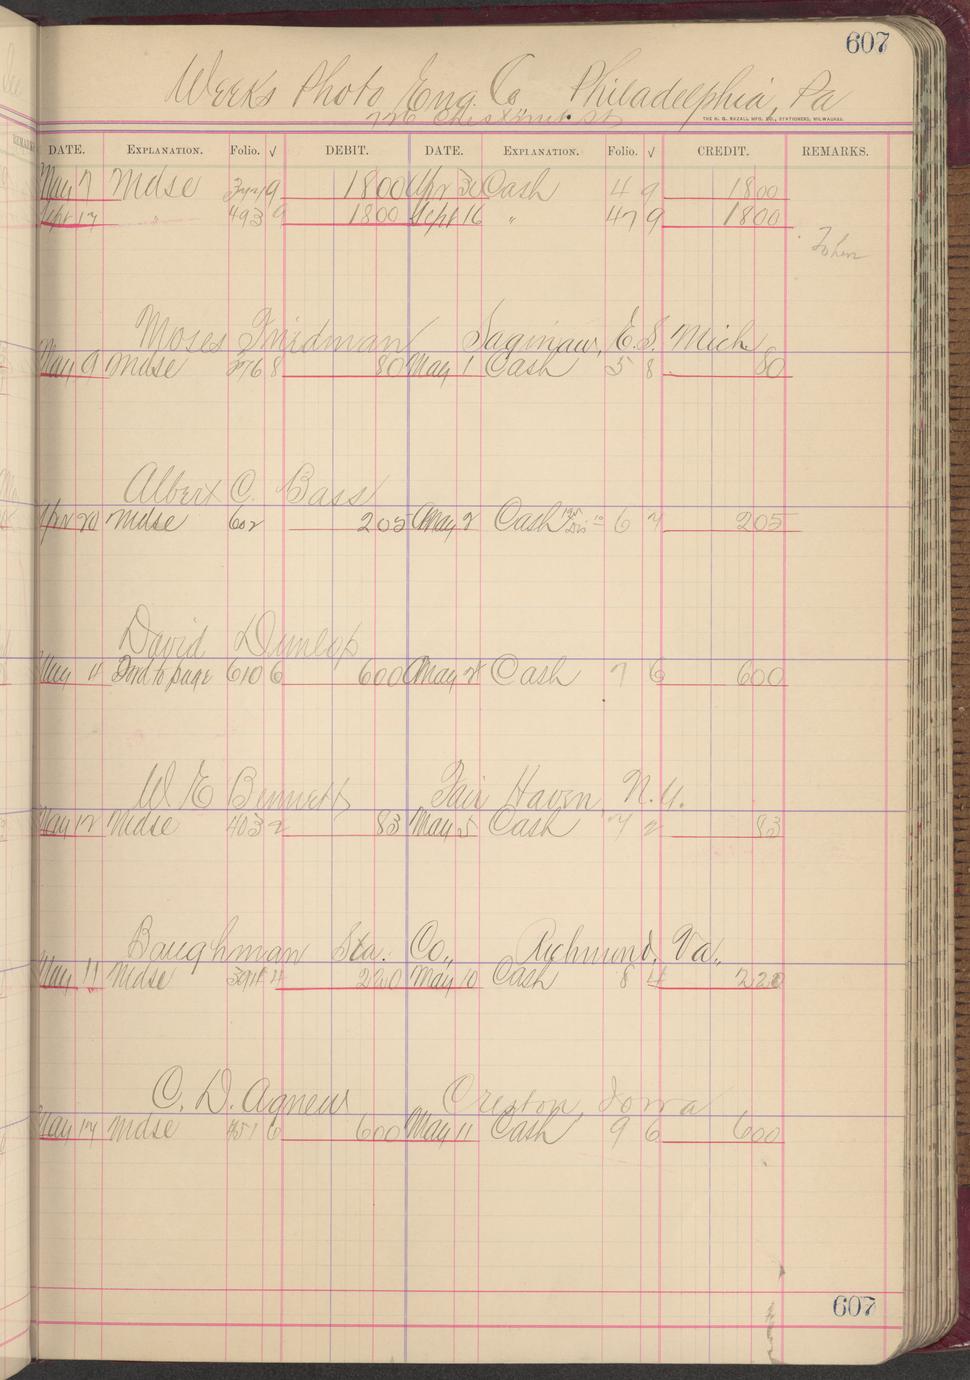 607
Weeks Photo Eng. Co. Philadelphia, Pa
726 Chestnut St
THE H. G. RAZALL MFG. CO., STATIONERS, MILWAUKEE.
DATE. EXPLANATION. Folio. √ DEBIT. DATE. EXPLANATION. Folio. √ CREDIT. REMARKS.
May 7 Mdse 9 1800 Apr 30 Cash 4 9 1800
Sept 17 " 493 9 1800 Sept 16 " 47 9 1800
Moses Friedman Saginaw, E.S. Mich
May 9 Mdse 376 8 80 May 1 Cash 5 8 80
Albert C. Bass
Apr 20 Mdse 602 205 May 2 Cash Dis 6 7 205
David Dunlop
May 11 Ford to page 610 6 600 May 2 Cash 7 6 600
W E Bennett Fair Haven, N.Y.
May 12 Mdse 403 2 83 May 5 Cash 7 2 83
Baughman Sta. Co., Richmond, Va.,
May 11 Mdse 4 220 May 10 Cash 8 4 220
C. D. Agnew Creston, Iowa
May 17 Mdse 451 6 600 May 11 Cash 9 6 600
607